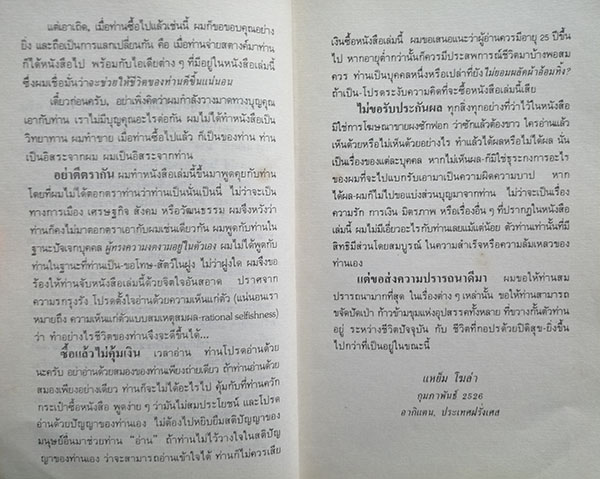 แต่เอาเถิด, เมื่อท่านซื้อไปแล้วเช่นนี้ ผมก็ขอขอบคุณอย่าง
ยิ่ง และถือเป็นการแลกเปลี่ยนกัน คือ เมื่อท่านจ่ายสตางค์มาท่าน
ก็ได้หนังสือไป พร้อมกับไอเดียต่าง ๆ ที่มีอยู่ในหนังสือเล่มนี้
ซึ่งผมเชื่อมั่นว่าจะช่วยให้ชีวิตของท่านดีขึ้นแน่นอน
เดี๋ยวก่อนครับ, อย่าเพิ่งคิดว่าผมกำลังวางมาดทวงบุญคุณ
เอากับท่าน เราไม่มีบุญคุณอะไรต่อกัน ผมไม่ได้ทำหนังสือเป็น
วิทยาทาน ผมทำขาย เมื่อท่านซื้อไปแล้ว ก็เป็นของท่าน ท่าน
เป็นอิสระจากผม ผมเป็นอิสระจากท่าน
อย่าตีตรากัน ผมทำหนังสือเล่มนี้ขึ้นมาพูดคุยกับท่าน
โดยที่ผมไม่ได้ตอกตราท่านว่าท่านเป็นนั่นเป็นนี่ ไม่ว่าจะเป็น
ทางการเมือง เศรษฐกิจ สังคม หรือวัฒนธรรม ผมจึงหวังว่า
ท่านก็คงไม่มาตอกตราเอากับผมเช่นเดียวกัน ผมพูดกับท่านใน
ฐานะปัจเจกบุคคล ผู้ทรงความงดงามอยู่ในตัวเอง ผมไม่ได้พูดกับ
ท่านในฐานะที่ท่านเป็น-ขอโทษ-สัตว์ในฝูง ไม่ว่าฝูงใด ผมจึงขอ
ร้องให้ท่านจับหนังสือเล่มนี้ด้วยจิตใจอันสอาด ปราศจาก
ความรกรุงรัง โปรดตั้งใจอ่านด้วยความเห็นแก่ตัว (แน่นอนเรา
หมายถึง ความเห็นแก่ตัวแบบสมเหตุสมผล-rational selfishness)
ว่า ทำอย่างไรชีวิตของท่านจึงจะดีขึ้นได้...
ซื้อแล้วไม่คุ้มเงิน เวลาอ่าน ท่านโปรดอ่านด้วย
นะครับ อย่าอ่านด้วยสมองของท่านเพียงถ่ายเดียว ถ้าท่านอ่านด้วย
สมองเพียงอย่างเดียว ท่านก็จะไม่ได้อะไรไป คุ้มกับที่ท่านควัก
กระเป๋าซื้อหนังสือ พูดง่าย ๆ ว่ามันไม่สมประโยชน์ และโปรด
อ่านด้วยปัญญาของท่านเอง ไม่ต้องไปหยิบยืมสติปัญญาของ
มนุษย์อื่นมาช่วยท่าน "อ่าน" ถ้าท่านไม่ไว้วางใจในสติปัญ
ญาของท่านเอง ว่าจะสามารถอ่านเข้าใจได้ ท่านก็ไม่ควรเสีย
เงินซื้อหนังสือเล่มนี้ ผมขอเสนอแนะว่าผู้อ่านควรมีอายุ 25 ปีขึ้น
ไป หากอายุต่ำกว่านั้นก็ควรมีประสพการณ์ชีวิตมาบ้างพอสม
ควร ท่านเป็นบุคคลหนึ่งหรือเปล่าที่ยังไม่ยอมผลัดผ้าอ้อมทิ้ง?
ถ้าเป็น-โปรดระงับความคิดที่จะซื้อหนังสือเล่มนี้เสีย
ไม่ขอรับประกันผล ทุกสิ่งทุกอย่างที่ว่าไว้ในหนังสือ
มิใช่การโฆษณาขายผงซักฟอก ว่าซักแล้วต้องขาว ใครอ่านแล้ว
เห็นด้วยหรือไม่เห็นด้วยอย่างไร ทำแล้วได้ผลหรือไม่ได้ผล นั่น
เป็นเรื่องของแต่ละบุคคล หากไม่เห็นผล-ก็มิใช่ธุระกงการอะไร
ของผมที่จะไปแบกรับเอามาเป็นความผิดความบาป หาก
ได้ผล-ผมก็ไม่ไปขอแบ่งส่วนบุญมาจากท่าน ไม่ว่าจะเป็นเรื่อง
ความรัก การเงิน มิตรภาพ หรือเรื่องอื่น ๆ ที่ปรากฏในหนังสือ
เล่มนี้ ผมไม่มีเอี่ยวอะไรกับท่านเลยแม้แต่น้อย ตัวท่านเท่านั้นที่มี
สิทธิมีส่วนโดยสมบูรณ์ ในความสำเร็จหรือความล้มเหลวของ
ท่านเอง
แต่ขอส่งความปรารถนาดีมา ผมขอให้ท่านสม
ปรารถนามากที่สุด ในเรื่องต่าง ๆ เหล่านั้น ขอให้ท่านสามารถ
ขจัดปัดเป่า ก้าวข้ามขุมแห่งอุปสรรคทั้งหลาย ที่ขวางกั้นตัวท่าน
อยู่ ระหว่างชีวิตปัจจุบัน กับ ชีวิตที่กอปรด้วยปิติสุข-ยิ่งขึ้น
ไปกว่าที่เป็นอยู่ในขณะนี้
แหย็ม โฆล่า
กุมภาพันธ์ 2526
อากิแตน, ประเทศฝรั่งเศส